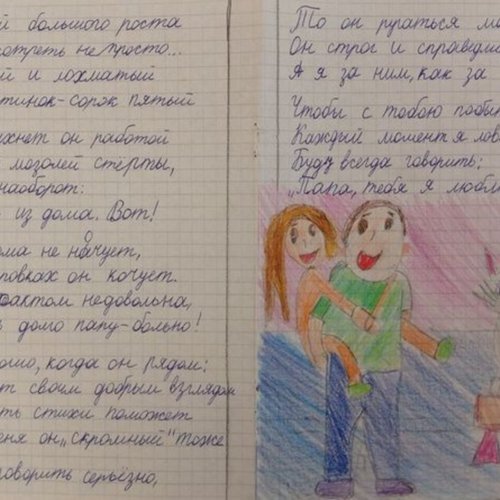 большого роста
не просто...
й и лохматый
тинок-сорок пятый
хнет он работой
мозолей стёрты,
наоборот:
из дома. Вот!
ма не ночует,
он кочует.
фактом недовольна,
домо папу-больно!
когда он рядом:
т своим добрым взглядом
ть стихи поможет
еня он „скромный" тоже
говорить серьёзно,
То он ругаться
Он строг и
А я за ним, как за
Чтобы с тобою
Каждый момент я
Буду всегда говорить:
„Папа, тебя я